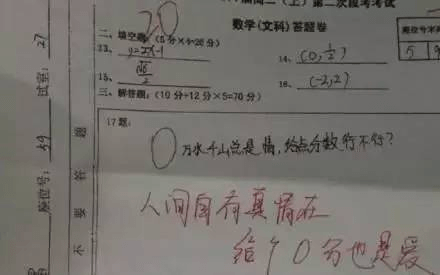 20
届高二（上）第二次段考考试
数学（文科）答题卷
二、填空题：（5分×4=20分）
13、 y=2x-1
14、 (0, 1/2)
15、 √6/2
16、 (-2,2)
三、解答题：（10分+12分×5=70分）
座位号末
5
17题：
0 万水千山总是情，给点分数行不行？
人间自有真情在
给个0分也是爱
试室：27
座位号：59
不要答题